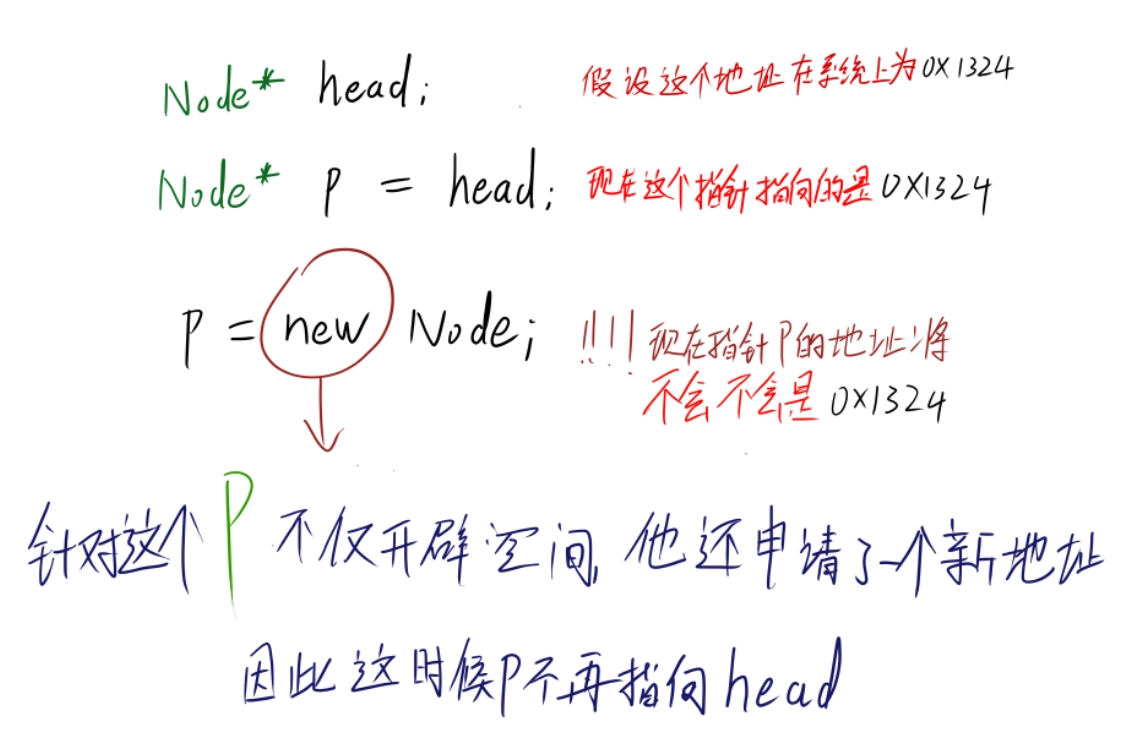 Node* head; 假设这个地址在系统上为0X1324
Node* p = head; 现在这个指针指向的是0X1324
p = new Node; !!!! 现在指针P的地址将
不会不会是 0X1324
针对这个P不仅开辟空间,他还申请了一个新地址
因此这时候p不再指向head